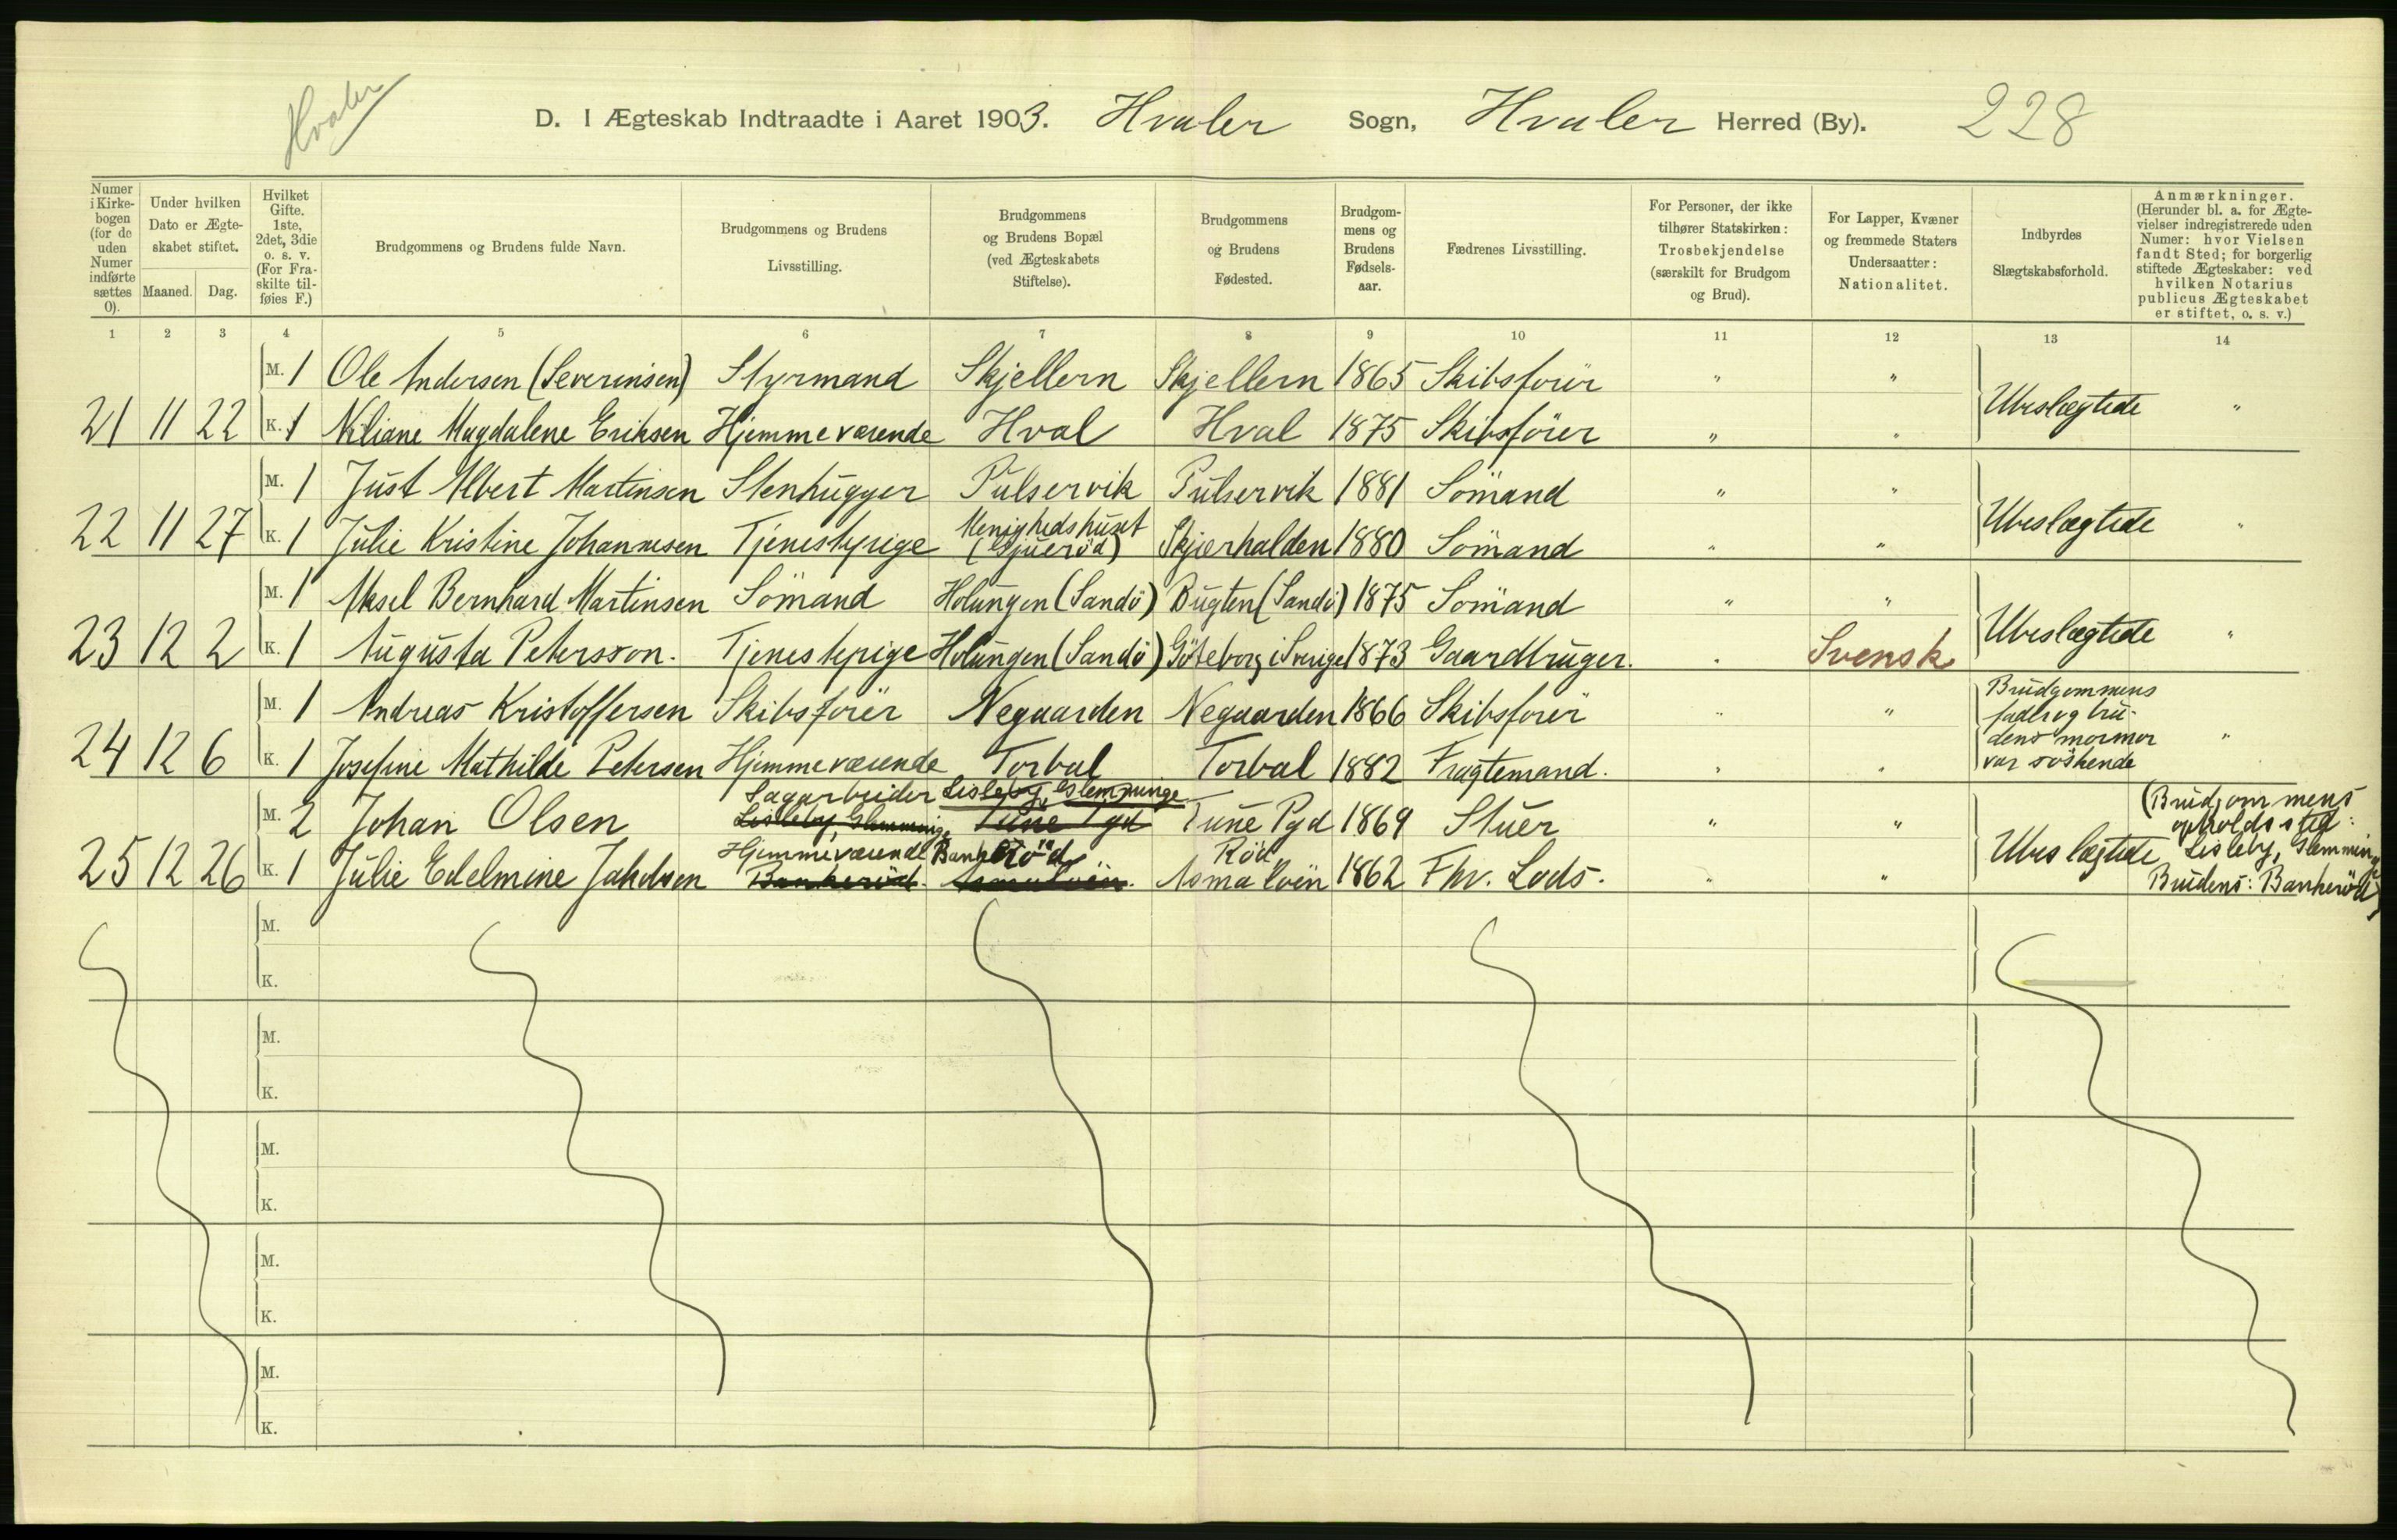 Hvaler
D. I Ægteskab Indtraadte i Aaret 1903. Hvaler Sogn, Hvaler Herred (By). 228
Numer i Kirkebogen (for de uden Numer indførte sættes 0).
Under hvilken Dato er Ægteskabet stiftet.
Maaned. Dag.
Hvilket Gifte. 1ste, 2det, 3die o. s. v. (For Fraskilte tilføies F.)
Brudgommens og Brudens fulde Navn.
Brudgommens og Brudens Livsstilling.
Brudgommens og Brudens Bopæl (ved Ægteskabets Stiftelse).
Brudgommens og Brudens Fødested.
Brudgommens og Brudens Fødselsaar.
Fædrenes Livsstilling.
For Personer, der ikke tilhører Statskirken: Trosbekjendelse (særskilt for Brudgom og Brud).
For Lapper, Kvæner og fremmede Staters Undersaatter: Nationalitet.
Indbyrdes Slægtskabsforhold.
Anmærkninger. (Herunder bl. a. for Ægtevielser indregistrerede uden Numer: hvor Vielsen fandt Sted; for borgerlig stiftede Ægteskaber: ved hvilken Notarius publicus Ægteskabet er stiftet, o. s. v.)
1 2 3 4 5 6 7 8 9 10 11 12 13 14
M. 1 Ole Andersen (Severinsen) Styrmand Skjellern Skjellern 1865 Skibsförer " "
21 11 22 K. 1 Niliane Magdalene Eriksen Hjemmeværende Hval Hval 1875 Skibsförer " " Ubeslægtede "
M. 1 Just Albert Martinsen Stenhugger Pulservik Pulservik 1881 Sömand " "
22 11 27 K. 1 Julie Kristine Johannesen Tjenestepige Menighedshuset Skjærhalden 1880 Sömand " " Ubeslægtede "
M. 1 Aksel Bernhard Martinsen Sömand Holungen (Sandö) Bugten (Sandö) 1875 Sömand " "
23 12 2 K. 1 Augusta Petersson. Tjenestepige Holungen (Sandö) Göteborg i Sverige 1873 Gaardbruger. " Svensk Ubeslægtede "
M. 1 Andreas Kristoffersen Skibsförer Negaarden Negaarden 1866 Skibsförer " "
24 12 6 K. 1 Josefine Mathilde Petersen Hjemmeværende Torbal Torbal 1882 Fragtemand. " " Brudgommens fader og brudens mormor var söskende "
M. 2 Johan Olsen Sagarbeider Lisleby, Glemminge Lisleby, Glemminge Tune Pgd Tune Pgd 1869 Stuer " "
25 12 26 K. 1 Julie Edelmine Jakobsen Hjemmeværende Bankeröd Bankeröd Asmalöen. Röd Asmalöen 1862 Fhv. Lods. " " Ubeslægtede (Brudgommens opholdssted: Lisleby, Glemminge Brudens: Bankeröd)
M.
K.
M.
K.
M.
K.
M.
K.
M.
K.